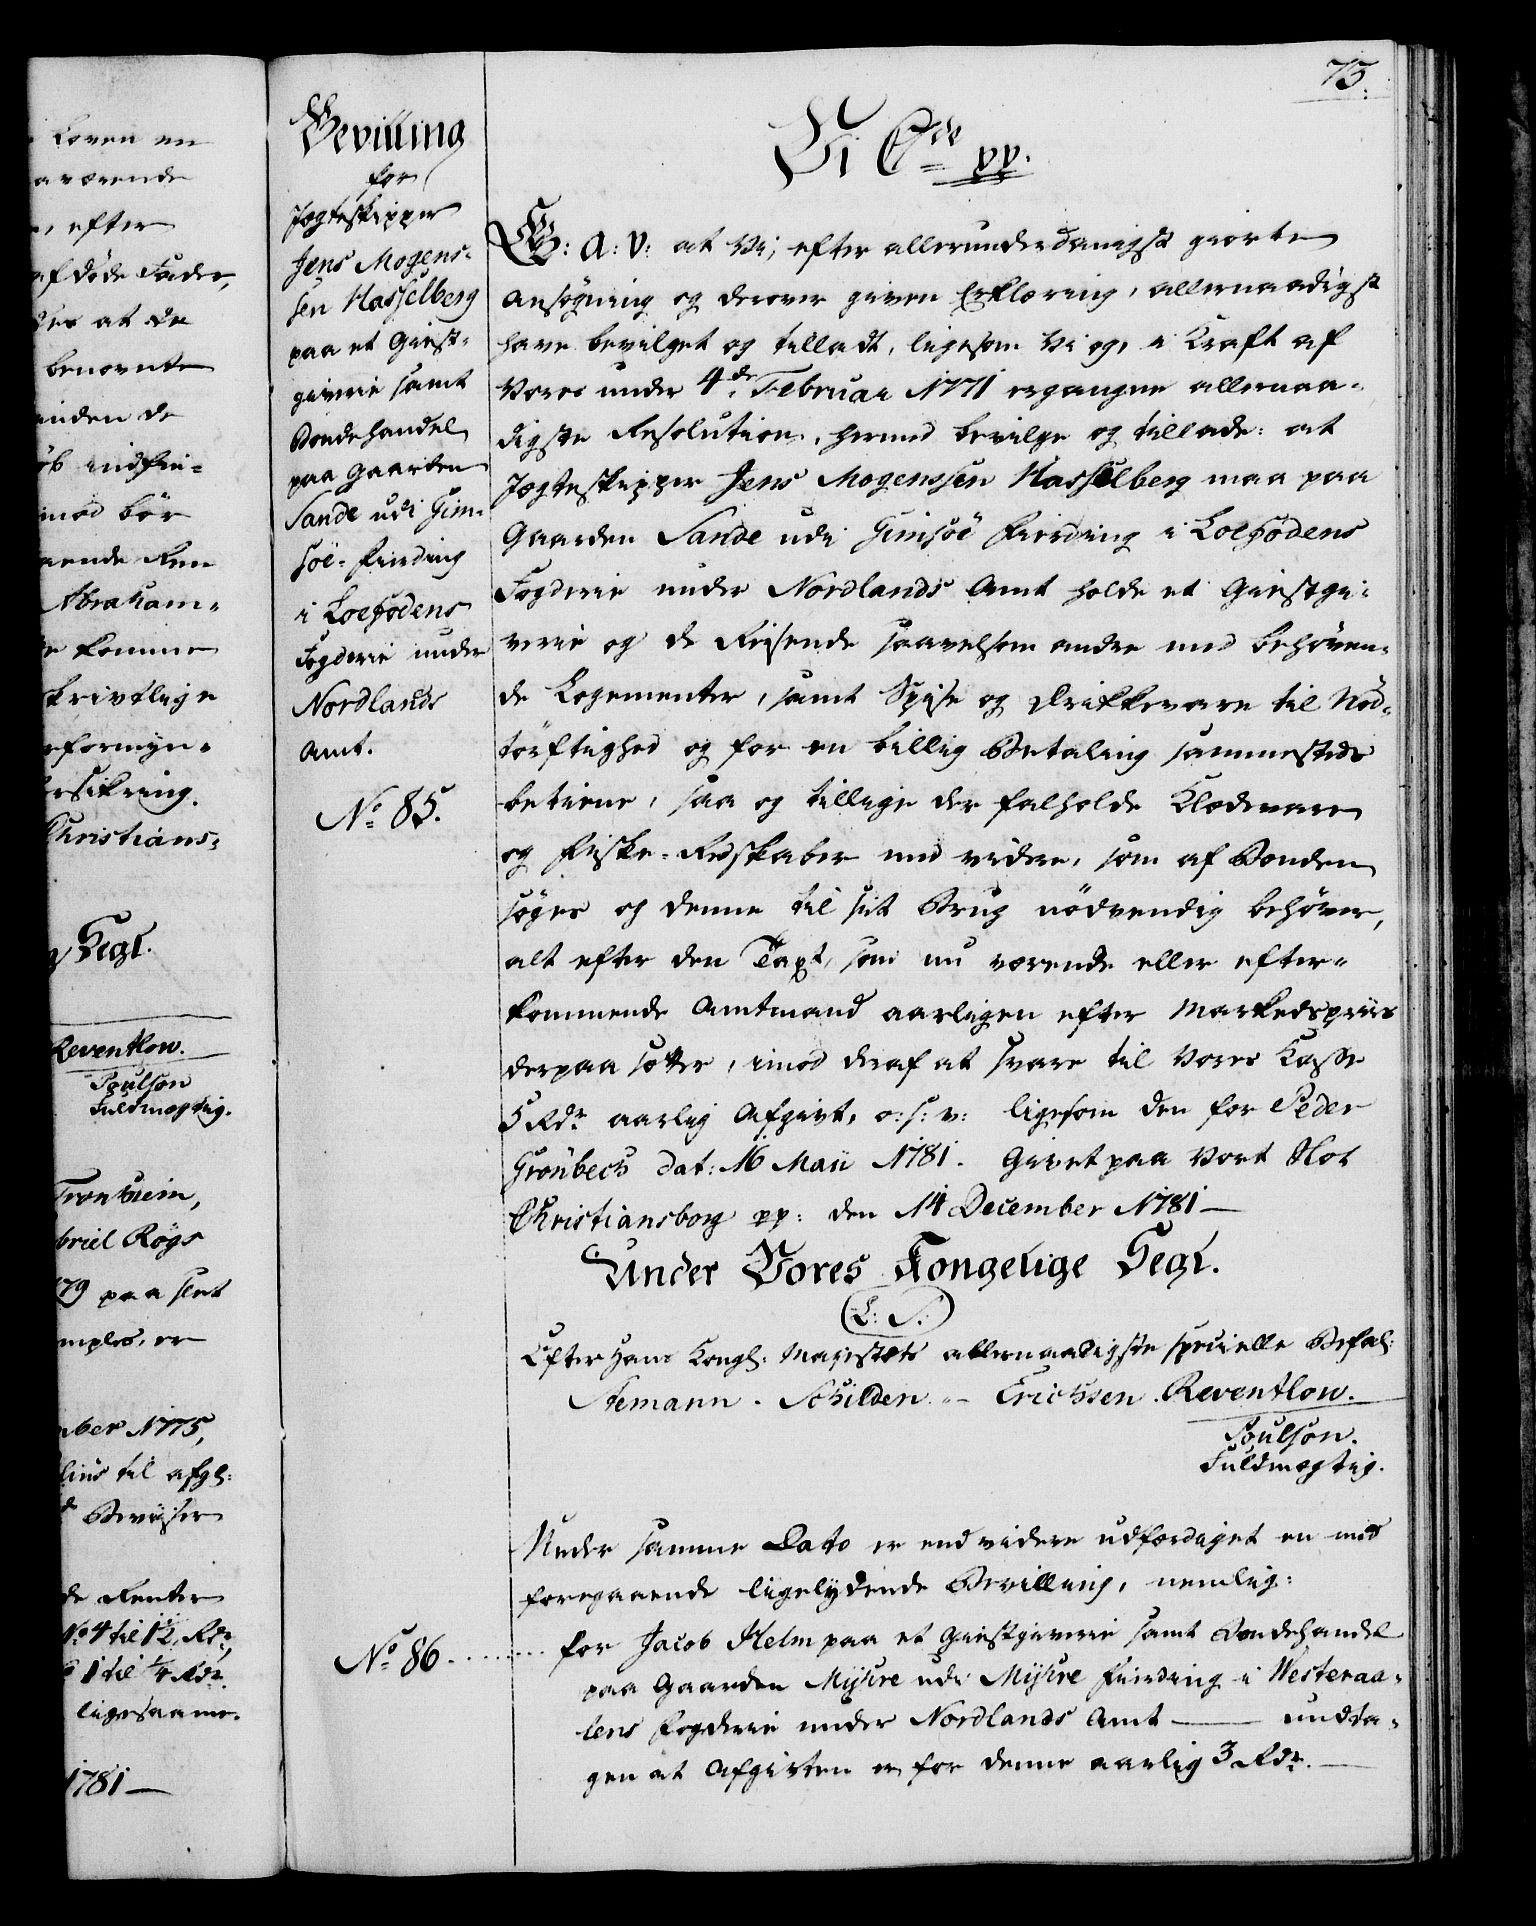 Loven en
aværende
, efter
afdöde Fader,
des at de
benævnte
inden de
öb indfin-
mod bör
aende Ren
Abraham-
e komme
skrivtlige
eformyn-
rsikring.
Christians-
g Segl.
Reventlow.
Poulson
Fuldmægtig.
Tronhiem,
briel Rögs
79 paa slet
mplr. er
mber 1775,
lius til afgl:
d Beviiser
de Renter
No 4 til 1½ Rdr,
1 til ¼ Rdr.
ligesaame.
1781 —
73.
Bevilling
for
Jægteskipper
Jens Mogens-
sen Hasselberg
paa et Giest-
giverie samt
Bondehandel
paa Gaarden
Sande udi Gim-
söe-Fierding
i Loefodens
Fogderie under
Nordlands
Amt.
No 85.
Vi C de pp.
G: A: V: at Vi, efter allerunderdanigst giorte
Ansögning og derover given Erklæring, allernaadigst
have bevilget og tilladt, ligesom Vi og, i Kraft af
Vores under 4de Februar 1771 ergangne allernaa-
digste Resolution, hermed bevilge og tillade: at
Jægteskipper Jens Mogenssen Hasselberg maa paa
Gaarden Sande udi Gimsöe Fierding i Loefodens
Fogderie under Nordlands Amt holde et Giestgi-
verie og de Reisende saavelsom andre med behöven-
de Logementer, samt Spise og Drikkevare til Nöd-
törftighed og for en billig Betaling sammesteds
betiene, saa og tillige der falholde Klædevare
og Fiske-Redskaber med videre, som af Bonden
söges og denne til sit Brug nödvendig behöver,
alt efter den Taxt, som nu værende eller efter-
kommende Amtmand aarligen efter Markedspriis
derpaa sætter, imod deraf at svare til Vores Casse
5 Rdr aarlig Afgivt, o: s: v: ligesom den for Peder
Grönbech dat: 16 Maii 1781. Givet paa Vort Slot
Christiansborg pp: den 14 December 1781 —
Under Vores Kongelige Segl.
(L: S:)
Efter Hans Kongl: Majestæts allernaadigste specielle Befal:
Stemann. Schilden. - Erichsen. Reventlow.
Poulson.
Fuldmægtig.
Under samme Dato er end videre udfærdiget en med
foregaaende ligelydende Bevilling, nemlig:
No 86. ........ for Jacob Helm paa et Giestgiverie samt Bondehandel
paa Gaarden Myhre udi Myhre Fierding i Westeraa-
lens Fogderie under Nordlands Amt — undta-
gen at Afgivten er for denne aarlig 3 Rdr. —